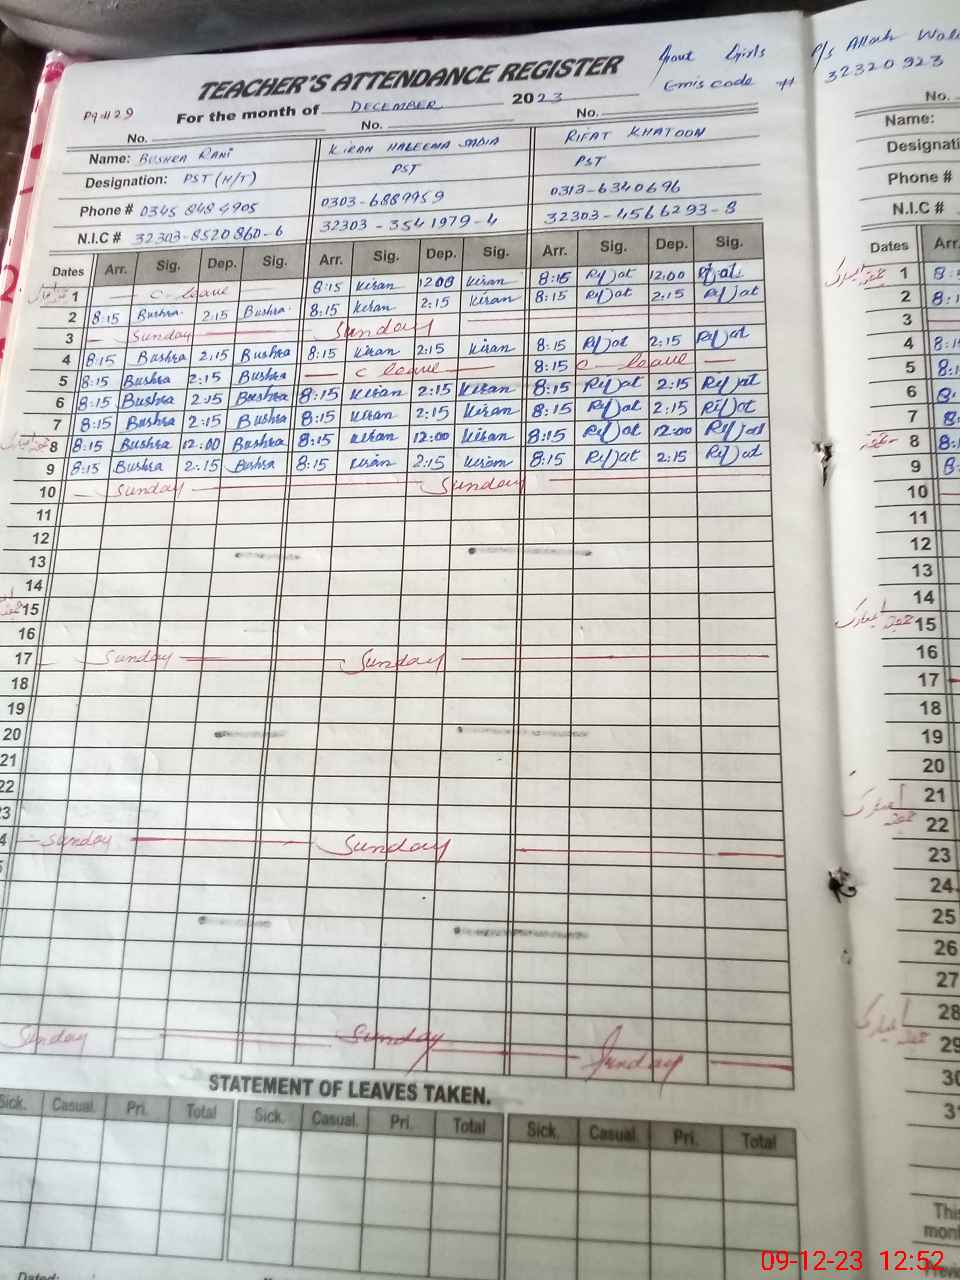 Govt Girls P/S Allah Wali
TEACHER'S ATTENDANCE REGISTER
Emis code # 32320923
Pg # 29 For the month of DECEMBER 2023
No. No. No.
Name: BUSHRA RANI KIRAN HALEEMA SADIA RIFAT KHATOON
Designation: PST (H/T) PST PST
Phone # 0345 848 4905 0303-6889959 0313-6340696
N.I.C # 32303-8520860-6 32303-3541979-4 32303-4566293-8
Dates Arr. Sig. Dep. Sig. Arr. Sig. Dep. Sig. Arr. Sig. Dep. Sig.
1 C-leave 8:15 Kiran 1200 Kiran 8:15 Rifat 12:00 Rifat
2 8:15 Bushra 2:15 Bushra 8:15 Kiran 2:15 Kiran 8:15 Rifat 2:15 Rifat
3 Sunday Sunday
4 8:15 Bushra 2:15 Bushra 8:15 Kiran 2:15 Kiran 8:15 Rifat 2:15 Rifat
5 8:15 Bushra 2:15 Bushra C leave 8:15 C leave
6 8:15 Bushra 2:15 Bushra 8:15 Kiran 2:15 Kiran 8:15 Rifat 2:15 Rifat
7 8:15 Bushra 2:15 Bushra 8:15 Kiran 2:15 Kiran 8:15 Rifat 2:15 Rifat
8 8:15 Bushra 12:00 Bushra 8:15 Kiran 12:00 Kiran 8:15 Rifat 12:00 Rifat
9 8:15 Bushra 2:15 Bushra 8:15 Kiran 2:15 Kiran 8:15 Rifat 2:15 Rifat
10 Sunday Sunday
11
12
13
14
15
16
17 Sunday Sunday
18
19
20
21
22
23
4 Sunday Sunday
Sunday Sunday Sunday
STATEMENT OF LEAVES TAKEN.
Sick. Casual. Pri. Total Sick. Casual. Pri. Total Sick. Casual. Pri. Total
Dated:
No.
Name:
Designati
Phone #
N.I.C #
Dates Arr.
جمعۃ المبارک 1 8:
2 8:1
3
4 8:1
5 8:
6 8:
7 8:
8 8:
9 8:
10
11
12
13
14
جمعۃ المبارک 15
16
17
18
19
20
21
جمعۃ المبارک 22
23
24
25
26
27
28
جمعۃ المبارک 29
30
31
This
mont
09-12-23 12:52